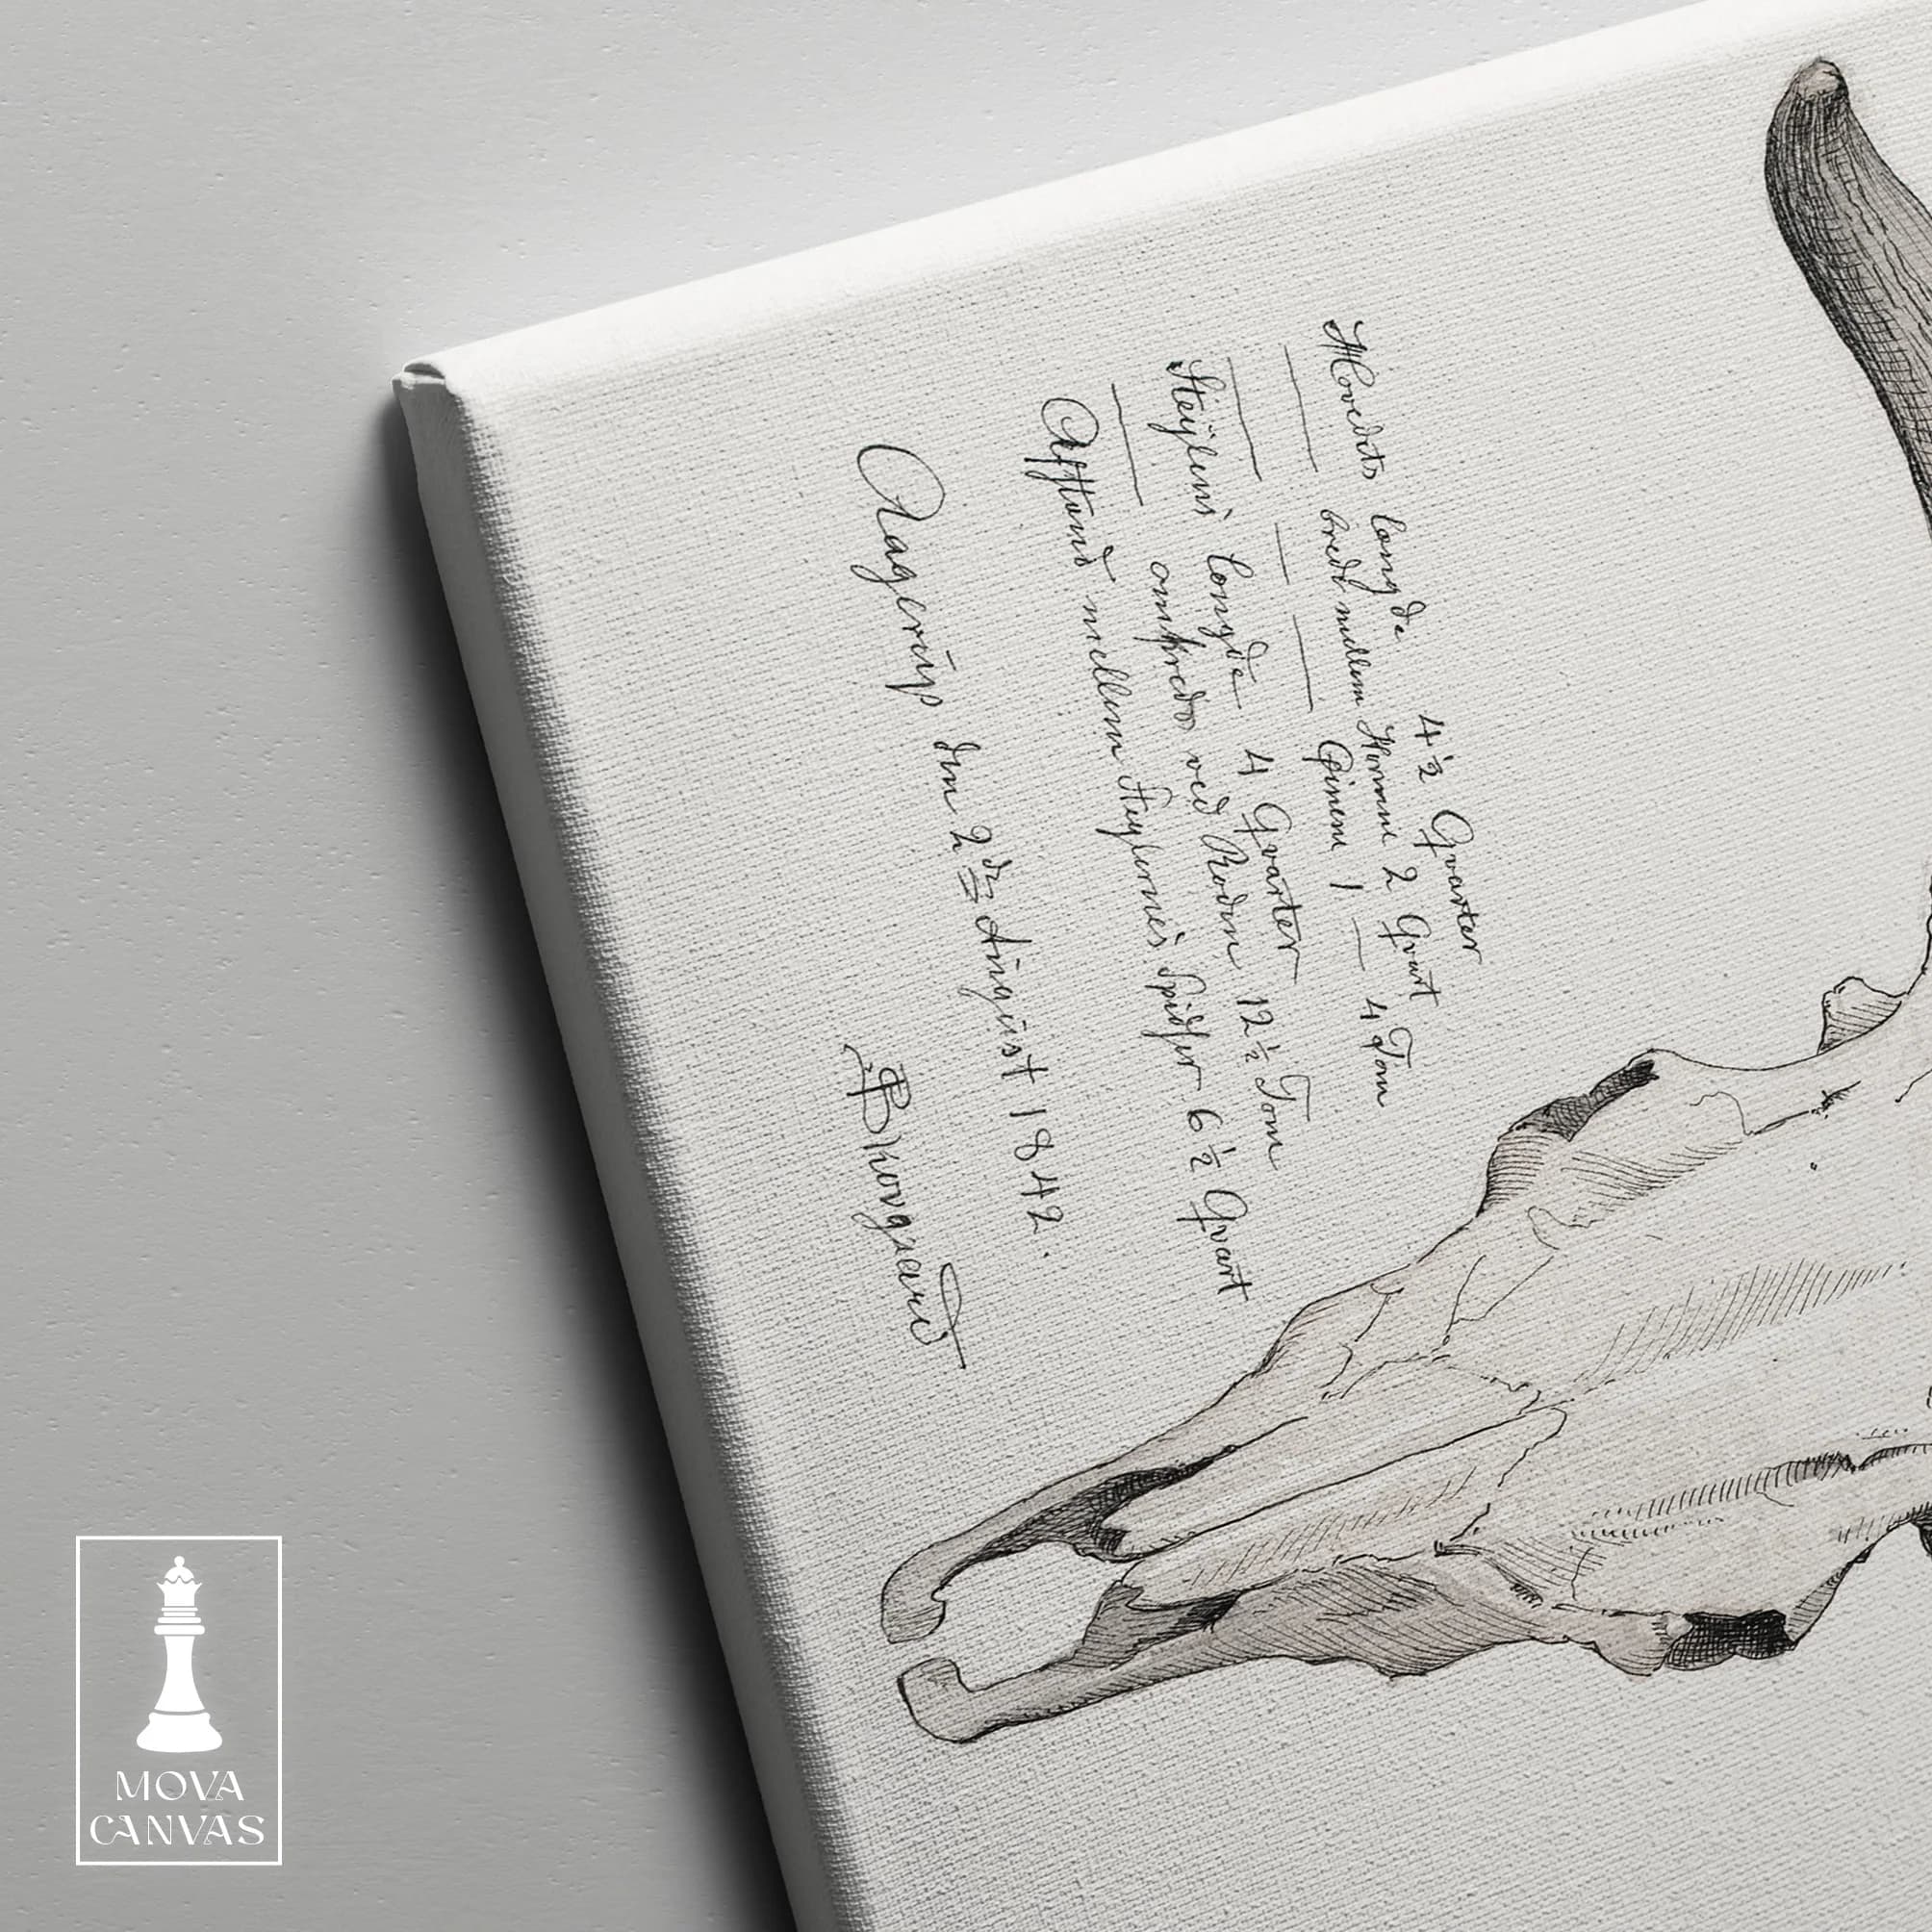 Hovedets længde 4½ Qvarter
— bredde mellem Hornene 2 Qvart
— — Øinene 1 — 4 Tom
længde 4 Qvarter
— omkreds ved Roden 12½ Tom
Afstand mellem Spidser 6½ Qvart
Aagerup den 2den August 1842.
PSkovgaard
MOVA
CANVAS